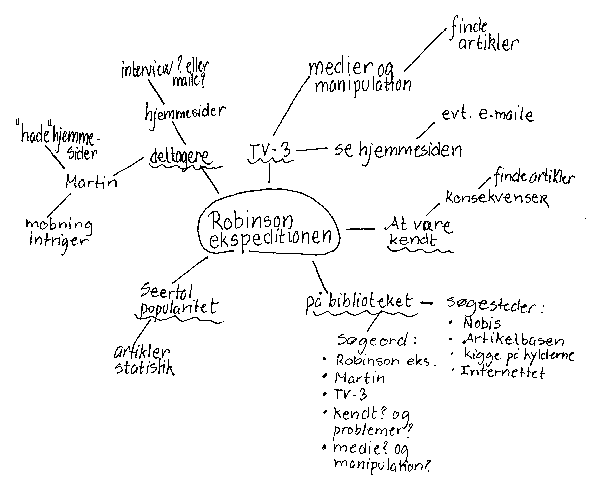 finde
artikler
interview? eller
maile?
medier og
manipulation
hjemmesider
evt. e-maile
"hade"hjemme-
sider
deltagere
TV-3
se hjemmesiden
Martin
finde artikler
konsekvenser
mobning
intriger
Robinson
ekspeditionen
At være
kendt
Seertal
popularitet
på biblioteket
søgesteder:
• Nobis
• Artikelbasen
• kigge på hylderne
• Internettet
artikler
statistik
Søgeord:
• Robinson eks.
• Martin
• TV-3
• kendt? og
problemer?
• medie? og
manipulation?